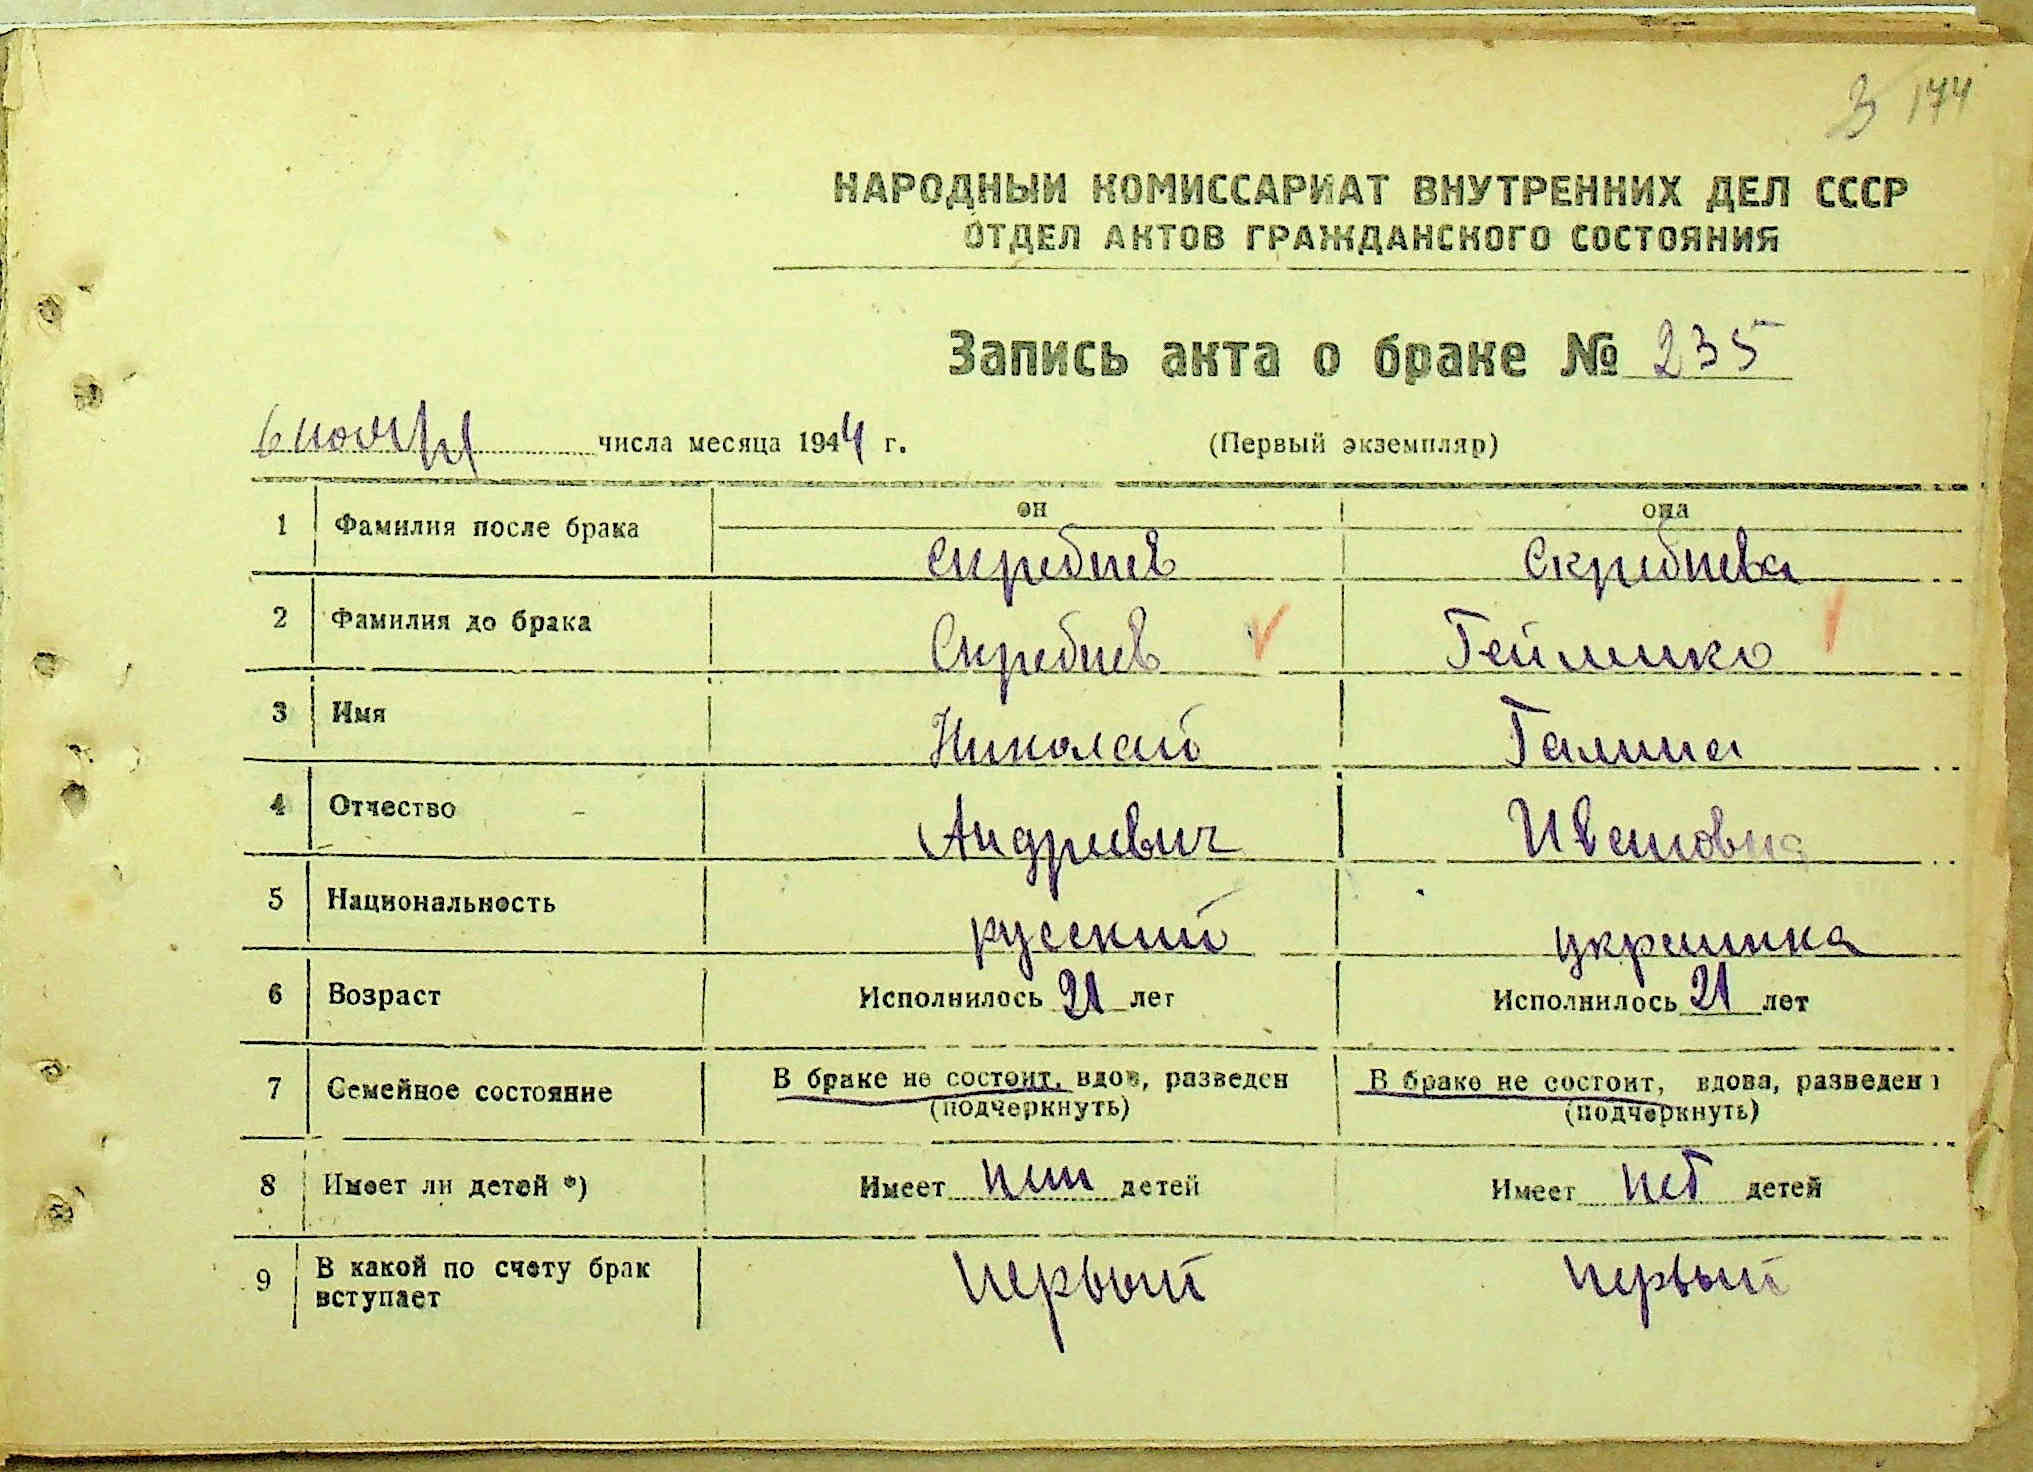 3 174
НАРОДНЫЙ КОМИССАРИАТ ВНУТРЕННИХ ДЕЛ СССР
ОТДЕЛ АКТОВ ГРАЖДАНСКОГО СОСТОЯНИЯ
Запись акта о браке № 235
6 ноября числа месяца 1944 г. (Первый экземпляр)
он она
1 Фамилия после брака Скребнев Скребнева
2 Фамилия до брака Скребнев Гейленко
3 Имя Николай Галина
4 Отчество Андреевич Ивановна
5 Национальность русский украинка
6 Возраст Исполнилось 21 лет Исполнилось 21 лет
7 Семейное состояние В браке не состоит, вдов, разведен В браке не состоит, вдова, разведен
(подчеркнуть) (подчеркнуть)
8 Имеет ли детей *) Имеет нет детей Имеет нет детей
9 В какой по счету брак вступает первый первый